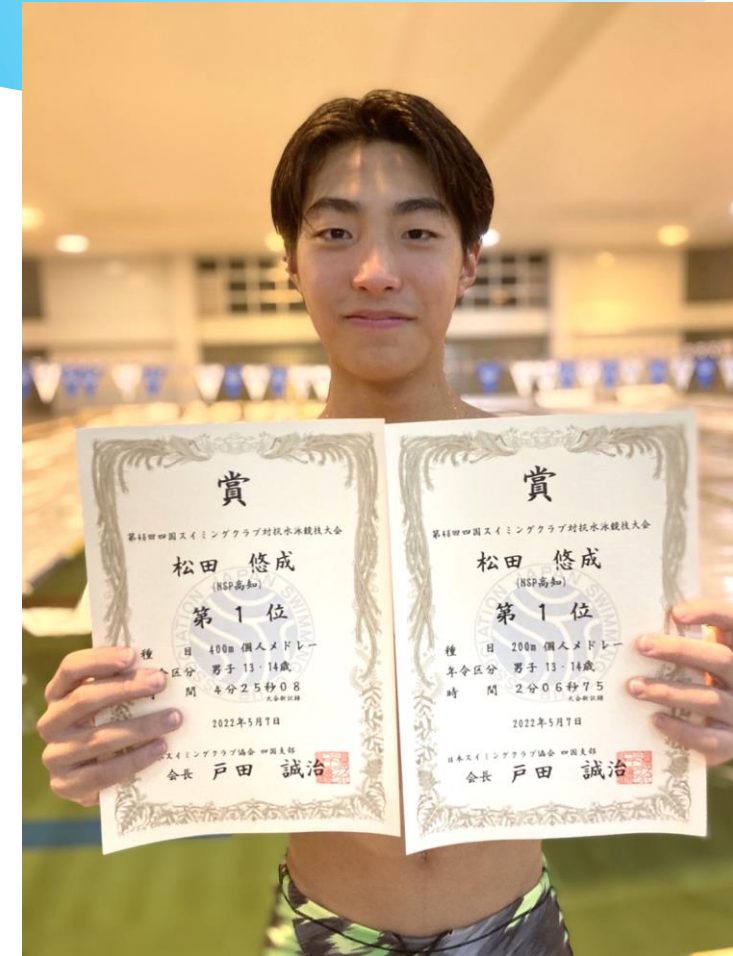 賞
第48回四国スイミングクラブ対抗水泳競技大会
松田 悠成
(NSP高知)
第 1 位
種 目 400m 個人メドレー
区分 男子 13・14歳
間 4分25秒08
大会新記録
2022年5月7日
スイミングクラブ協会 四国支部
会長 戸田 誠治
賞
第48回四国スイミングクラブ対抗水泳競技大会
松田 悠成
(NSP高知)
第 1 位
種 目 200m 個人メドレー
年令区分 男子 13・14歳
時 間 2分06秒75
大会新記録
2022年5月7日
日本スイミングクラブ協会 四国支部
会長 戸田 誠治